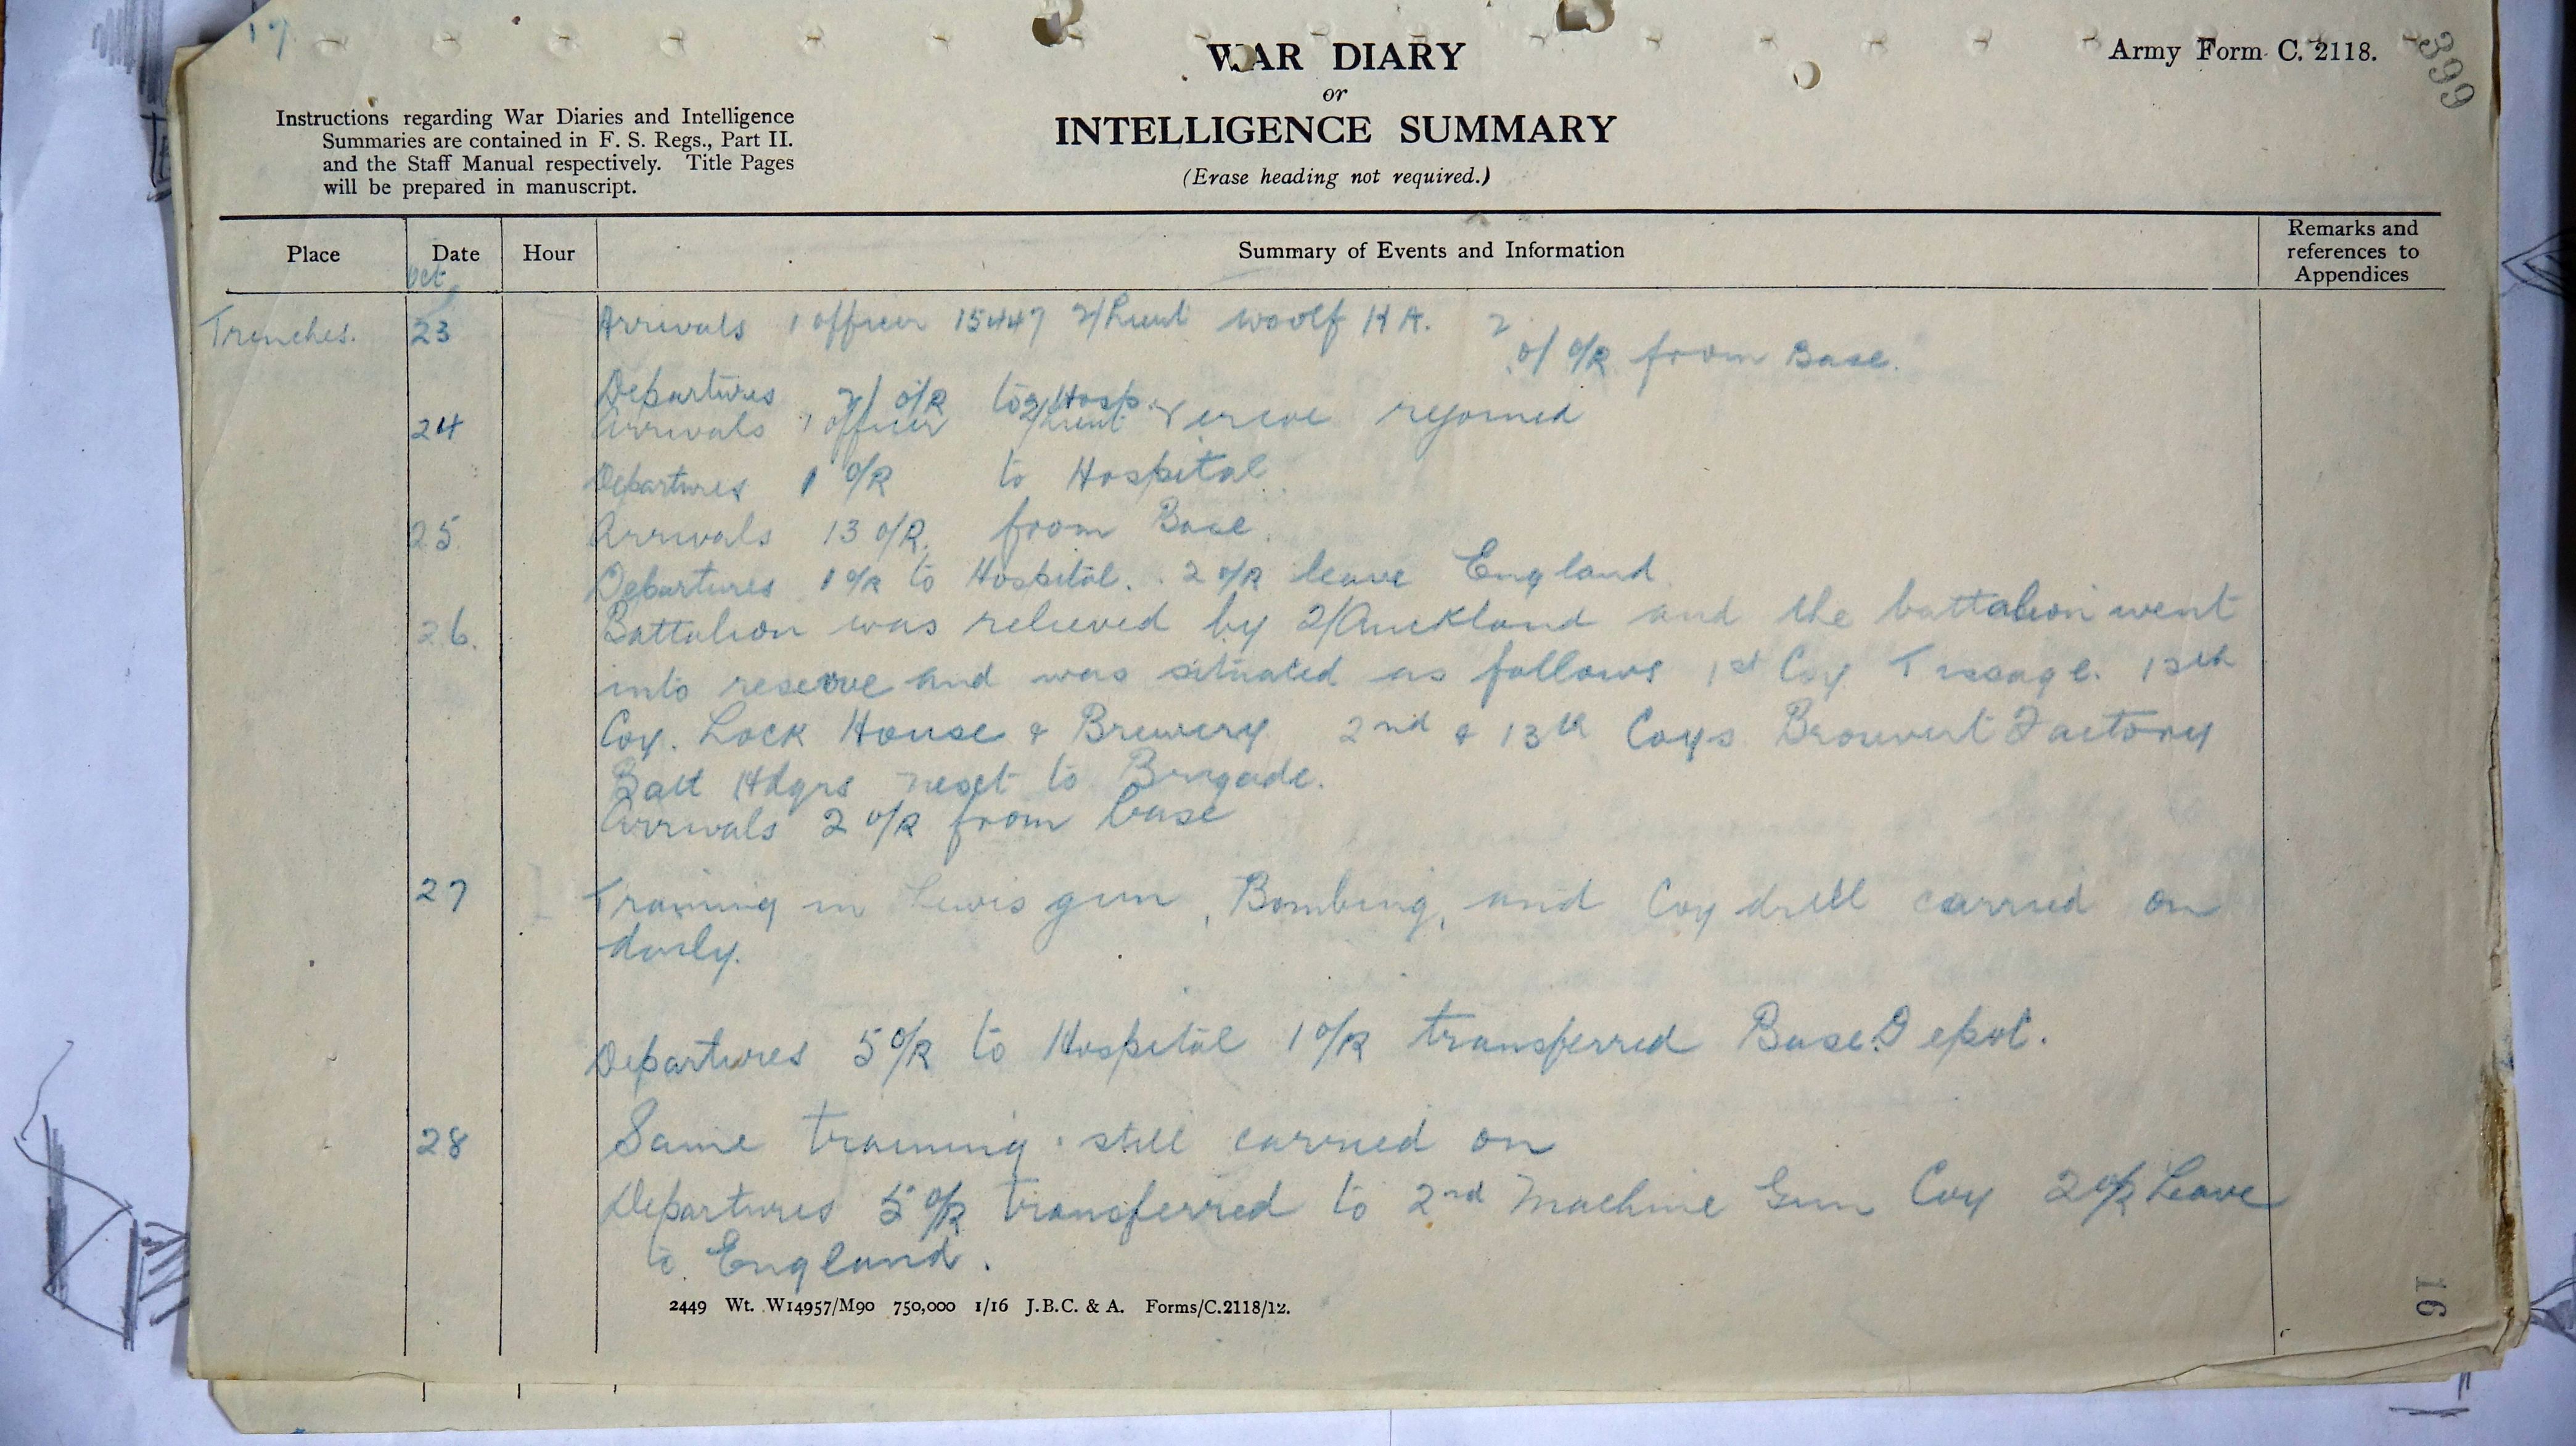 17.
WAR DIARY
or
INTELLIGENCE SUMMARY
(Erase heading not required.)
Army Form C. 2118.
399
Instructions regarding War Diaries and Intelligence
Summaries are contained in F. S. Regs., Part II.
and the Staff Manual respectively. Title Pages
will be prepared in manuscript.
Place Date Hour Summary of Events and Information Remarks and references to Appendices
Oct
Trenches. 23 Arrivals 1 officer 15447 2/Lieut Woolf H A. 2
O/R from Base.
Departures O/R to Hosp.
24 Arrivals 1 officer 2/Lieut rejoined
Departures 1 O/R to Hospital
25 Arrivals 13 O/R. from Base.
Departures 1 O/R to Hospital. 2 O/R leave England
26. Battalion was relieved by 2/Auckland and the battalion went
into reserve and was situated as follows 1st Coy Tissage. 15th
Coy. Lock House & Brewery 2nd & 13th Coys Factory
Batt Hdqrs next to Brigade.
Arrivals 2 O/R from base
27 Training in Lewis gun, Bombing, and Coy drill carried on
daily.
Departures 5 O/R to Hospital 1 O/R transferred Base Depot.
28 Same training still carried on
Departures 5 O/R transferred to 2nd Machine Gun Coy 2 O/R Leave
to England.
2449 Wt. W14957/M90 750,000 1/16 J.B.C. & A. Forms/C.2118/12.
16